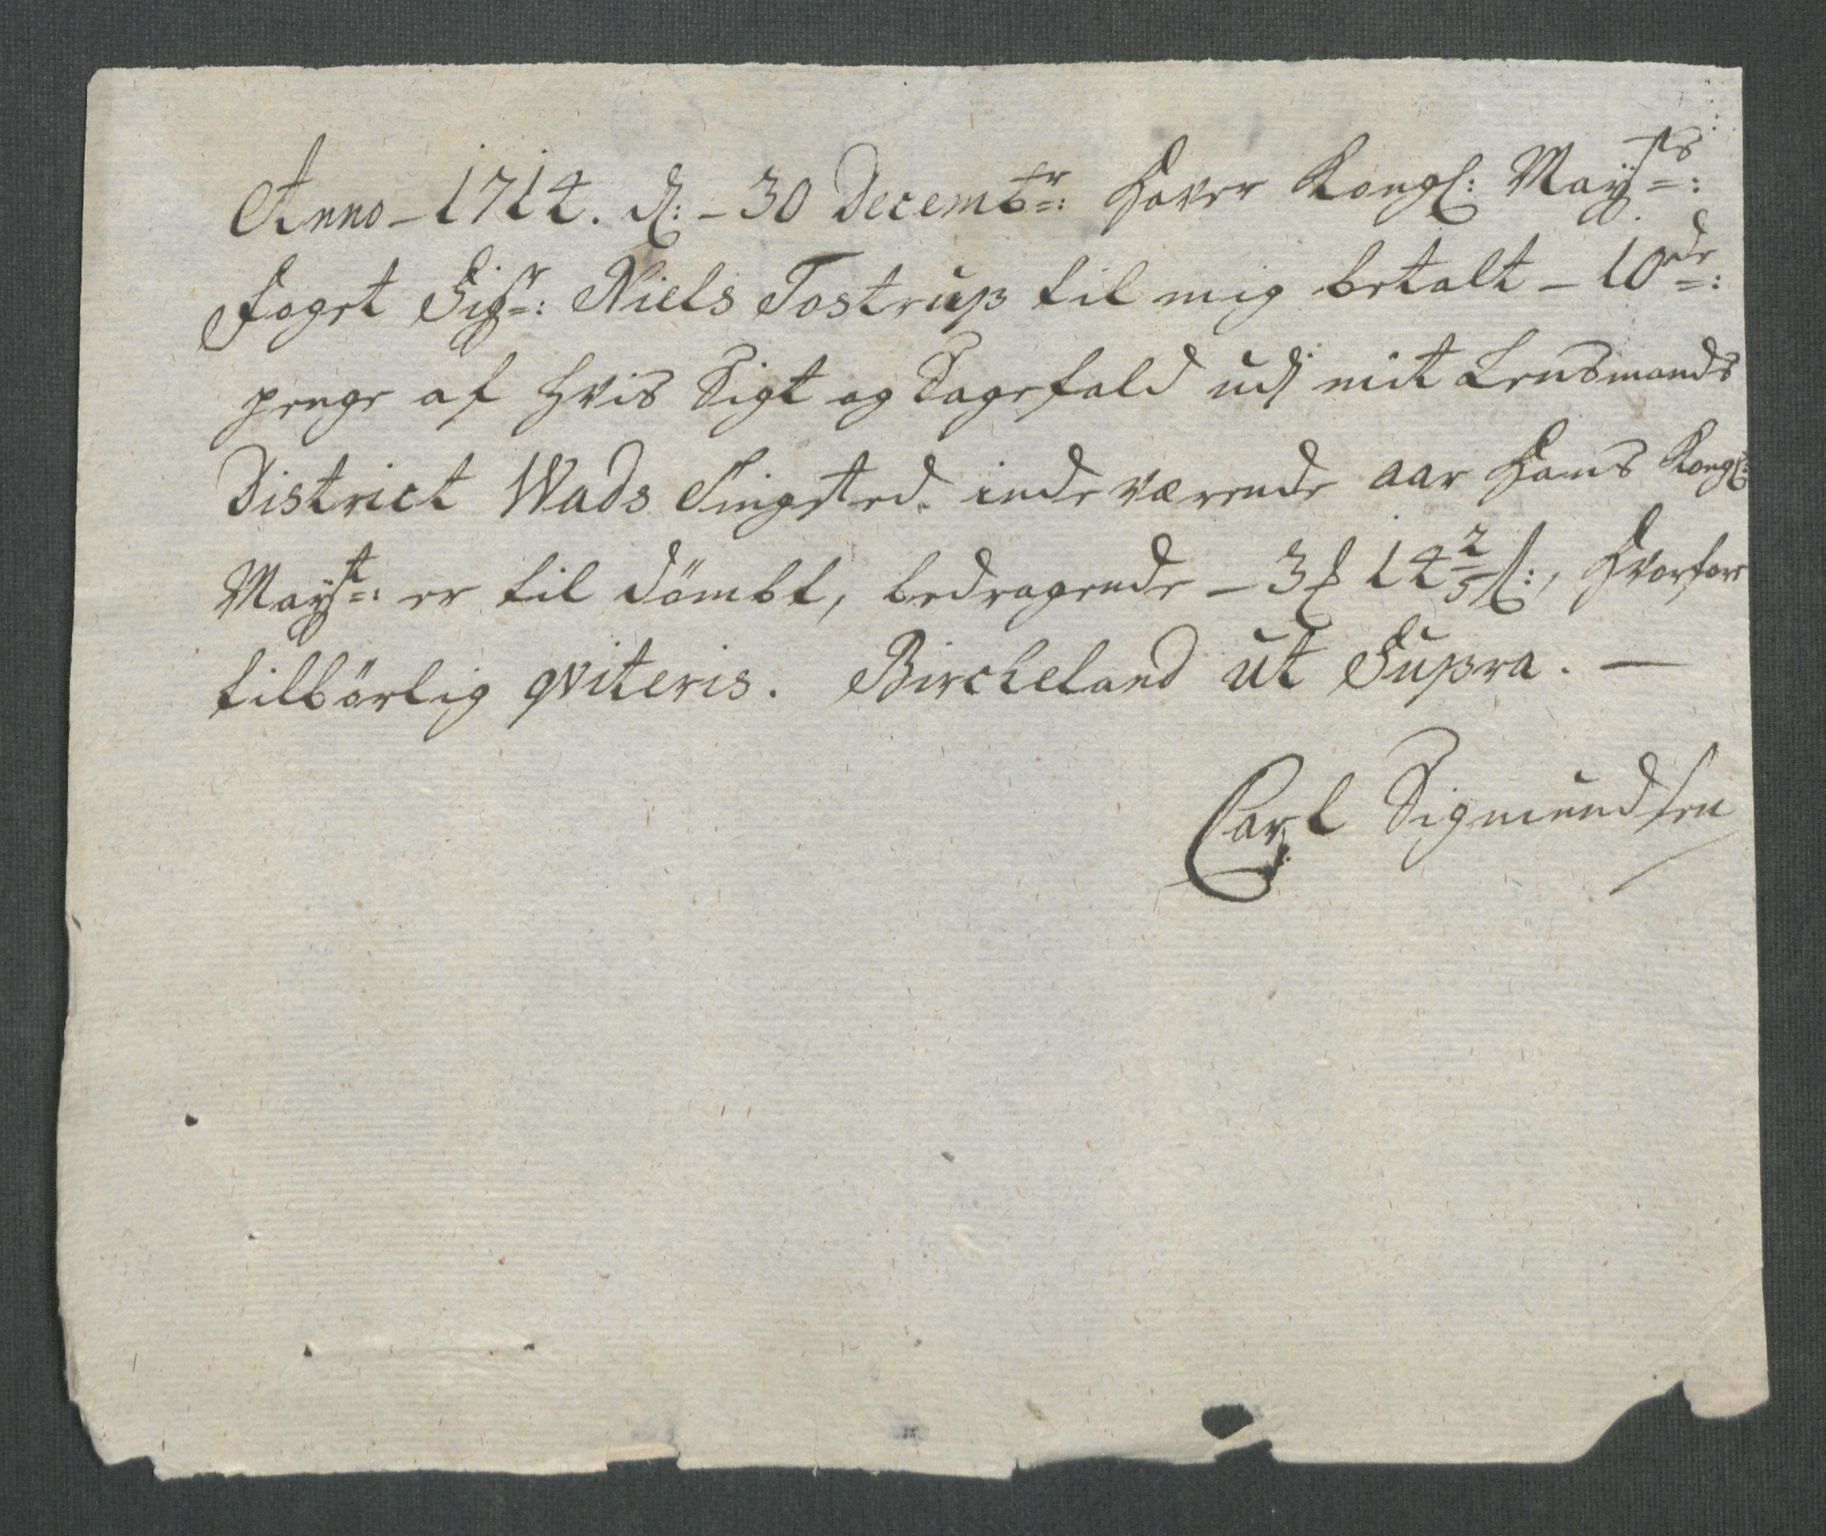 Anno - 1714. d: - 30 Decembr: Haver Kongl: Mayts:
foget Sigr: Niels Tostrup til mig betalt - 10de:
penge af hvis Sigt og Sagefald udj mit Lensmands
District Wads Tingsted. indeværende aar Hans Kongl:
Mayt: er til dömbt, bedragende - 3 14 2/5 s:, Hvorfor
tilbörlig qviteris. Bircheland ut Supra. -
Carl Sigmundsen